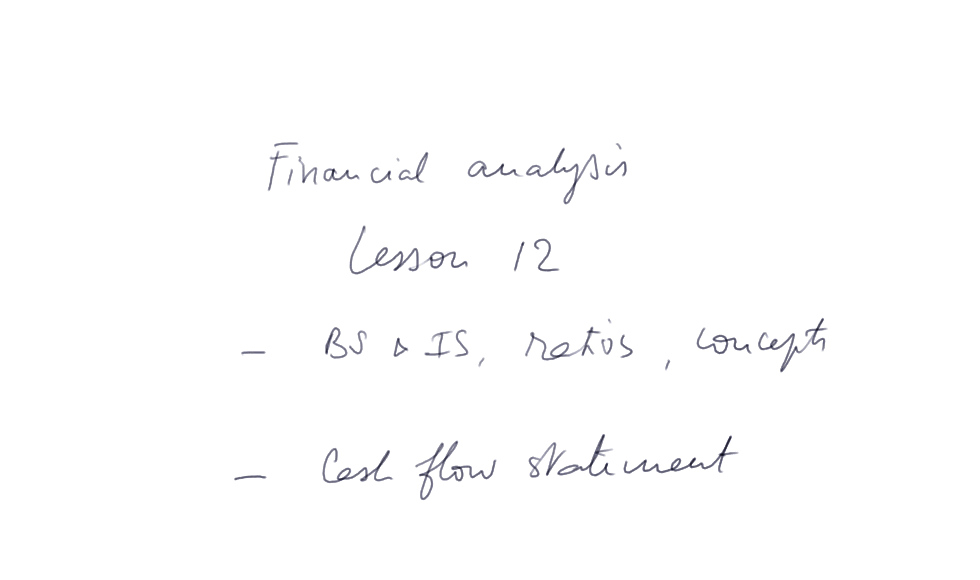 Financial analysis
Lesson 12
- BS & IS, ratios, concepts
- Cash flow statement